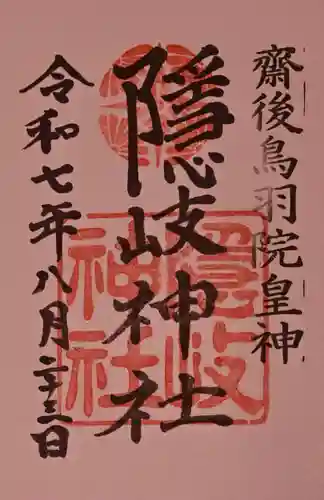 齋後鳥羽院皇神
隠岐神社
令和七年八月二十三日
隠岐
神社